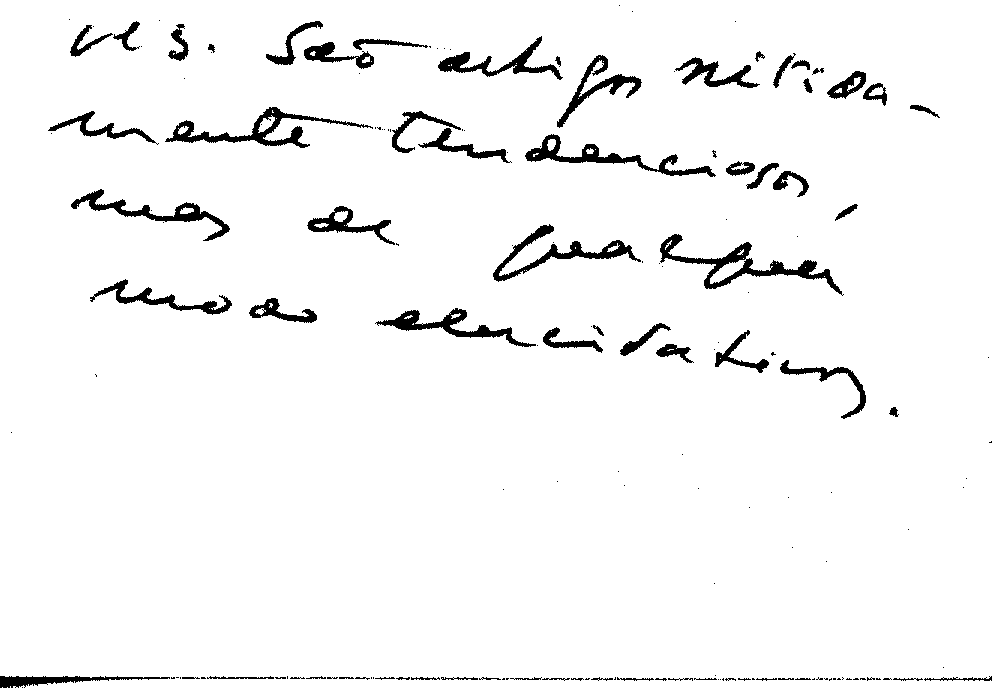 ves. São artigos nitida-
mente tendenciosos,
mas de qualquer
modo elucidativos.